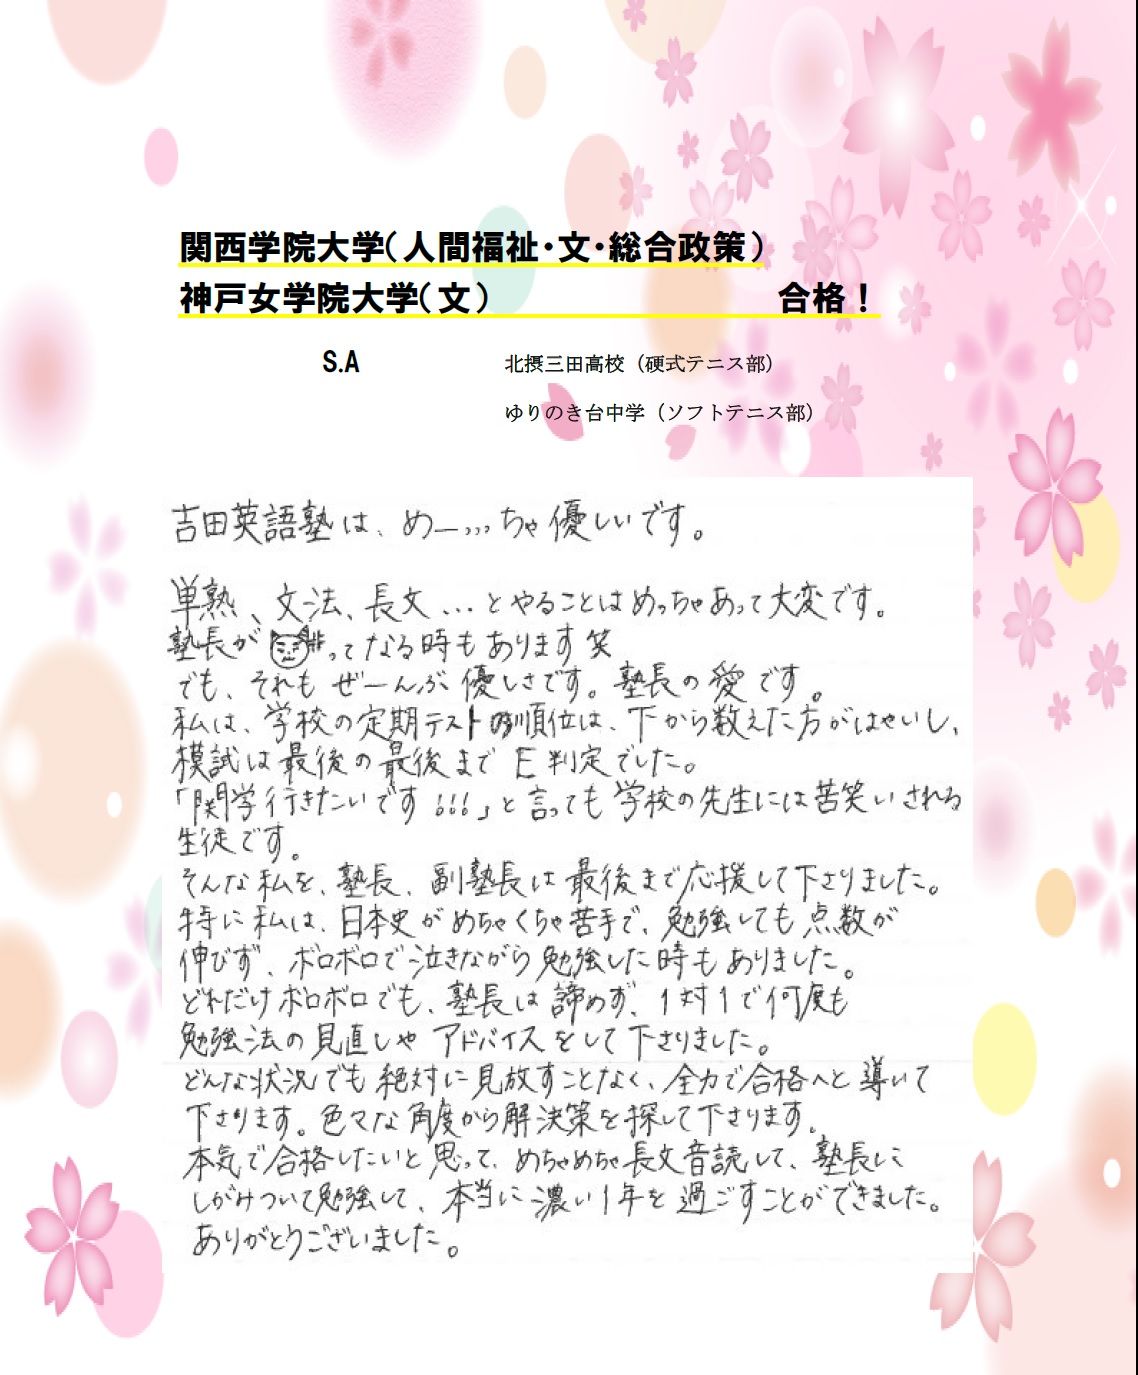 関西学院大学(人間福祉・文・総合政策)
神戸女学院大学(文) 合格！
S.A 北摂三田高校（硬式テニス部）
ゆりのき台中学（ソフトテニス部）
吉田英語塾は、めーっっっちゃ優しいです。
単熟、文法、長文…とやることはめっちゃあって大変です。
塾長が ってなる時もあります笑
でも、それもぜーんぶ優しさです。塾長の愛です。
私は、学校の定期テストの順位は、下から数えた方がはやいし、
模試は最後の最後までE判定でした。
「関学行きたいです!!!」と言っても学校の先生には苦笑いされる
生徒です。
そんな私を、塾長、副塾長は最後まで応援して下さりました。
特に私は、日本史がめちゃくちゃ苦手で、勉強しても点数が
伸びず、ボロボロで泣きながら勉強した時もありました。
どれだけボロボロでも、塾長は諦めず、1対1で何度も
勉強法の見直しやアドバイスをして下さりました。
どんな状況でも絶対に見放すことなく、全力で合格へと導いて
下さります。色々な角度から解決策を探して下さります。
本気で合格したいと思って、めちゃめちゃ長文音読して、塾長に
しがみついて勉強して、本当に濃い1年を過ごすことができました。
ありがとうございました。